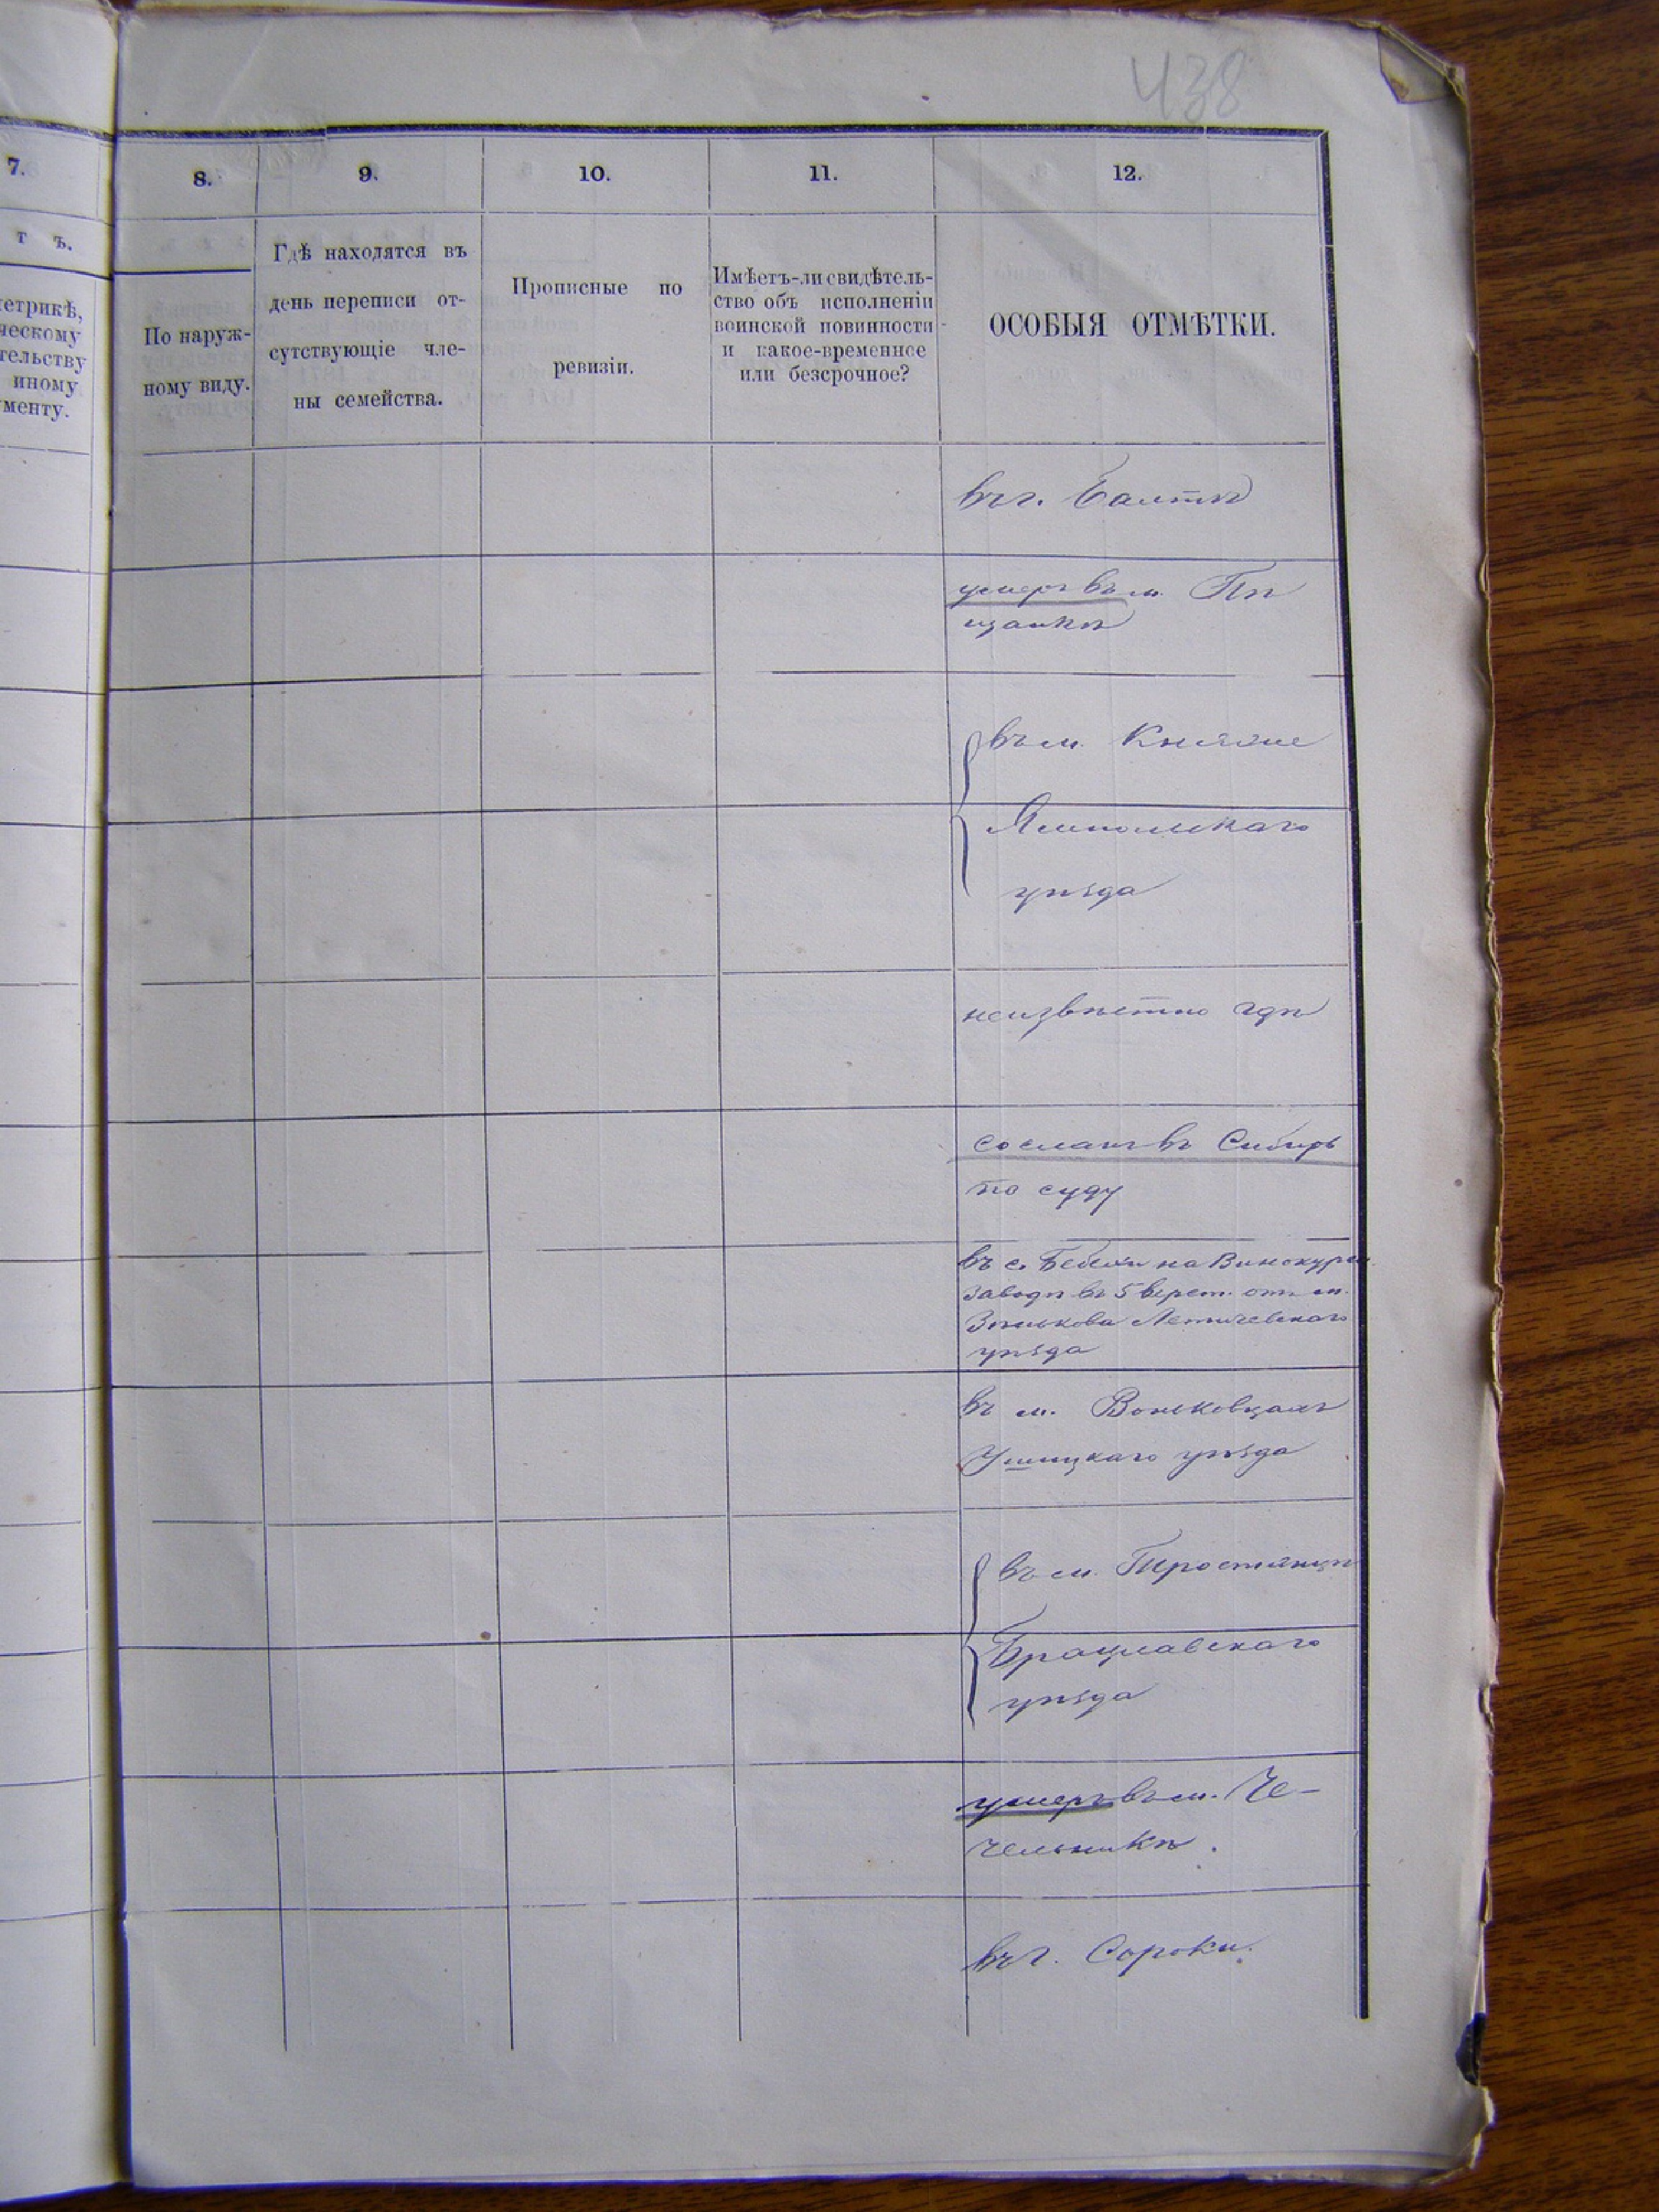 438
7.
8.
9.
10.
11.
12.
т ъ.
етрикѣ,
ческому
тельству
иному
менту.
По наруж-
ному виду.
Гдѣ находятся въ
день переписи от-
сутствующіе чле-
ны семейства.
Прописные по
ревизіи.
Имѣетъ-ли свидѣтель-
ство объ исполненіи
воинской повинности
и какое-временное
или безсрочное?
ОСОБЫЯ ОТМѢТКИ.
въ г. Балтѣ
умеръ въ м. Пѣ
щанкѣ
въ м. Княже
Ямпольскаго
уѣзда
неизвѣстно гдѣ
сосланъ въ Сибирь
по суду
въ с. на Винокурен.
заводѣ въ 5 верст. отъ м.
Зинькова Летичевскаго
уѣзда
въ м. Воньковцахъ
Ушицкаго уѣзда
въ м. Тростянцѣ
Брацлавскаго
уѣзда
умеръ въ м. Че-
чельникѣ.
въ г. Сороки.